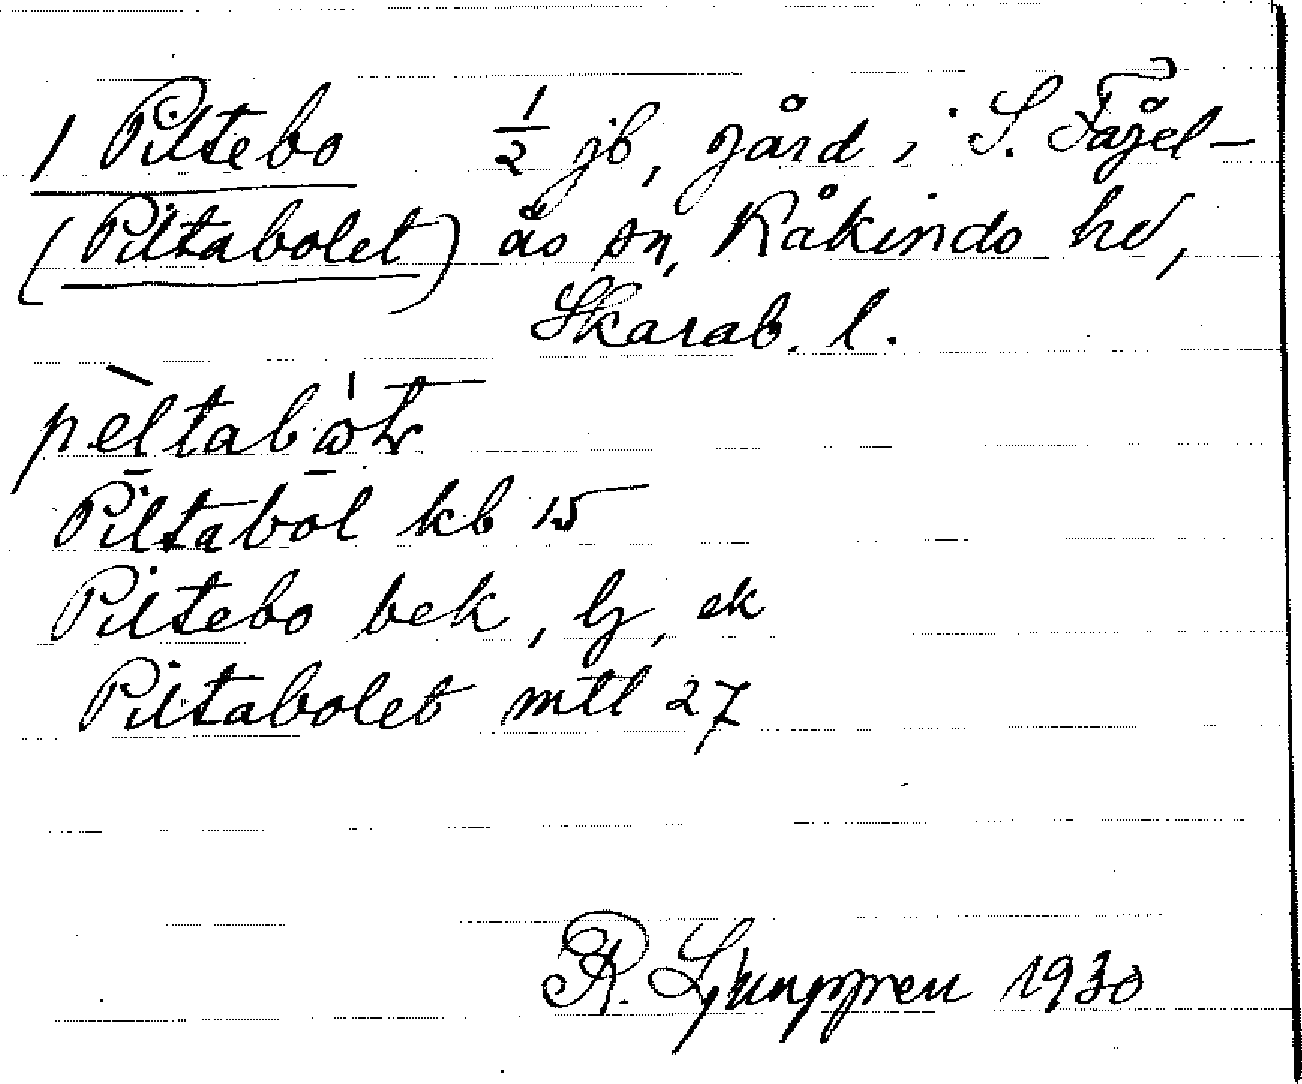 1 Piltebo ½ jb, gård i S. Fågel-
(Piltabolet) ås sn, Kåkinds hd,
Skarab. l.
pèltabo̵tr
Piltabol kb 15
Piltebo bek, lj, ek
Piltabolet mtl 27
R. Ljunggren 1930